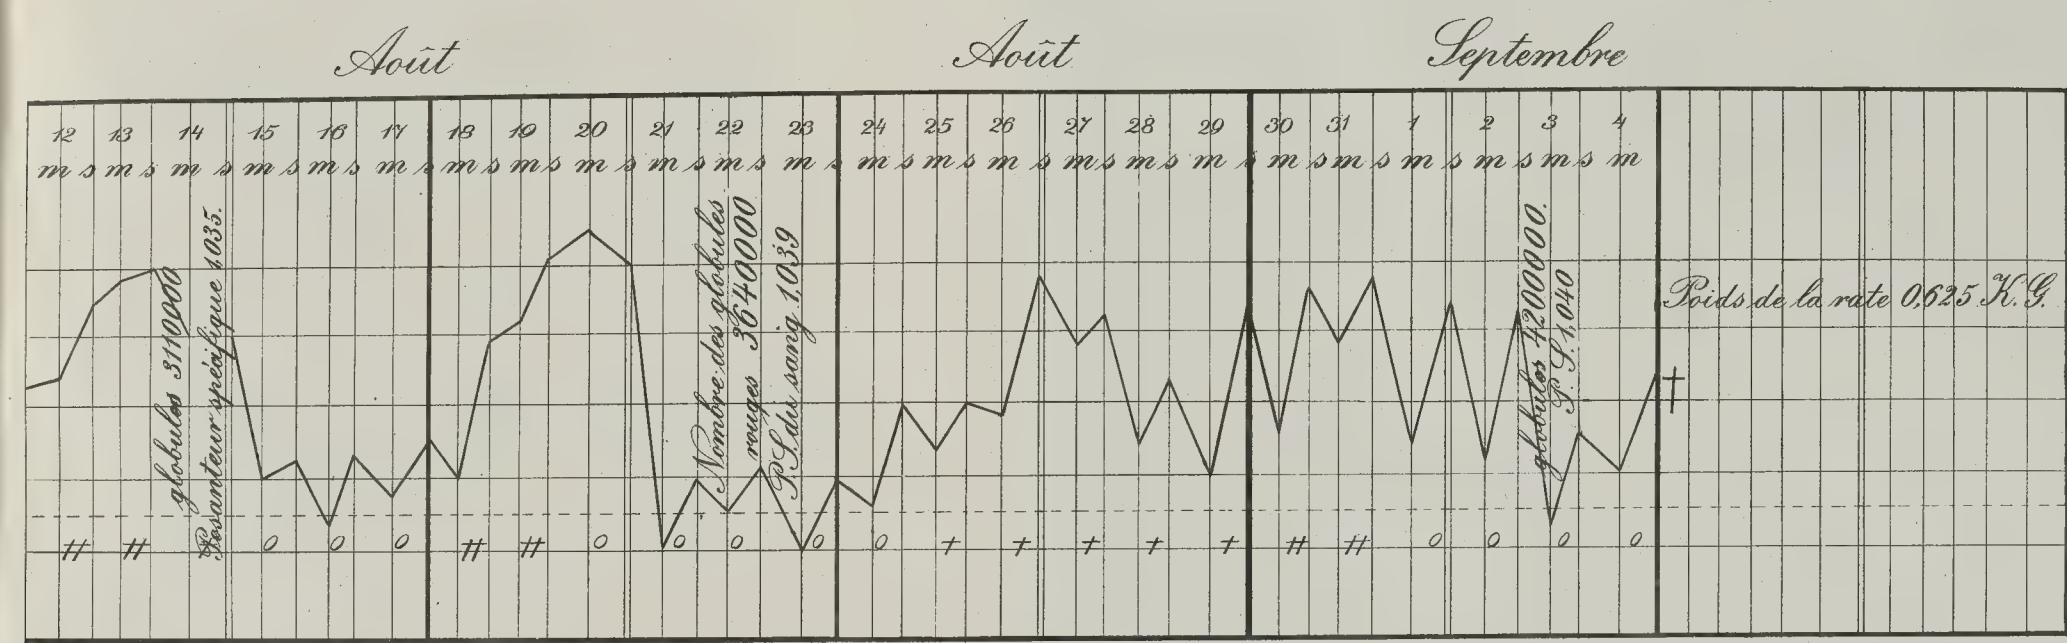 Août Août Septembre
12 13 14 15 16 17 18 19 20 21 22 23 24 25 26 27 28 29 30 31 1 2 3 4
m s m s m s m s m s m s m s m s m s m s m s m s m s m s m s m s m s m s m s m s m s m s m s m
globules 3110000
Pesanteur spécifique 1,035.
Nombre des globules
rouges 3640000
P. S. du sang 1,039
globules 4200000.
P. S. 1,040
Poids de la rate 0,625 K.G.
†
# # 0 0 0 # # 0 0 0 0 0 + + + + + # # 0 0 0 0